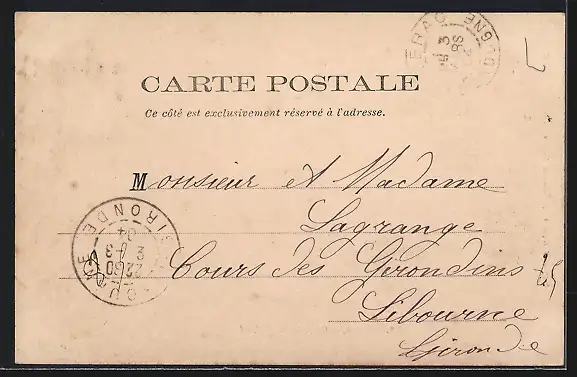 CARTE POSTALE
Ce côté est exclusivement réservé à l'adresse.
Monsieur et Madame
Lagrange
Cours des Girondins
Libourne
Gironde
GIRONDE